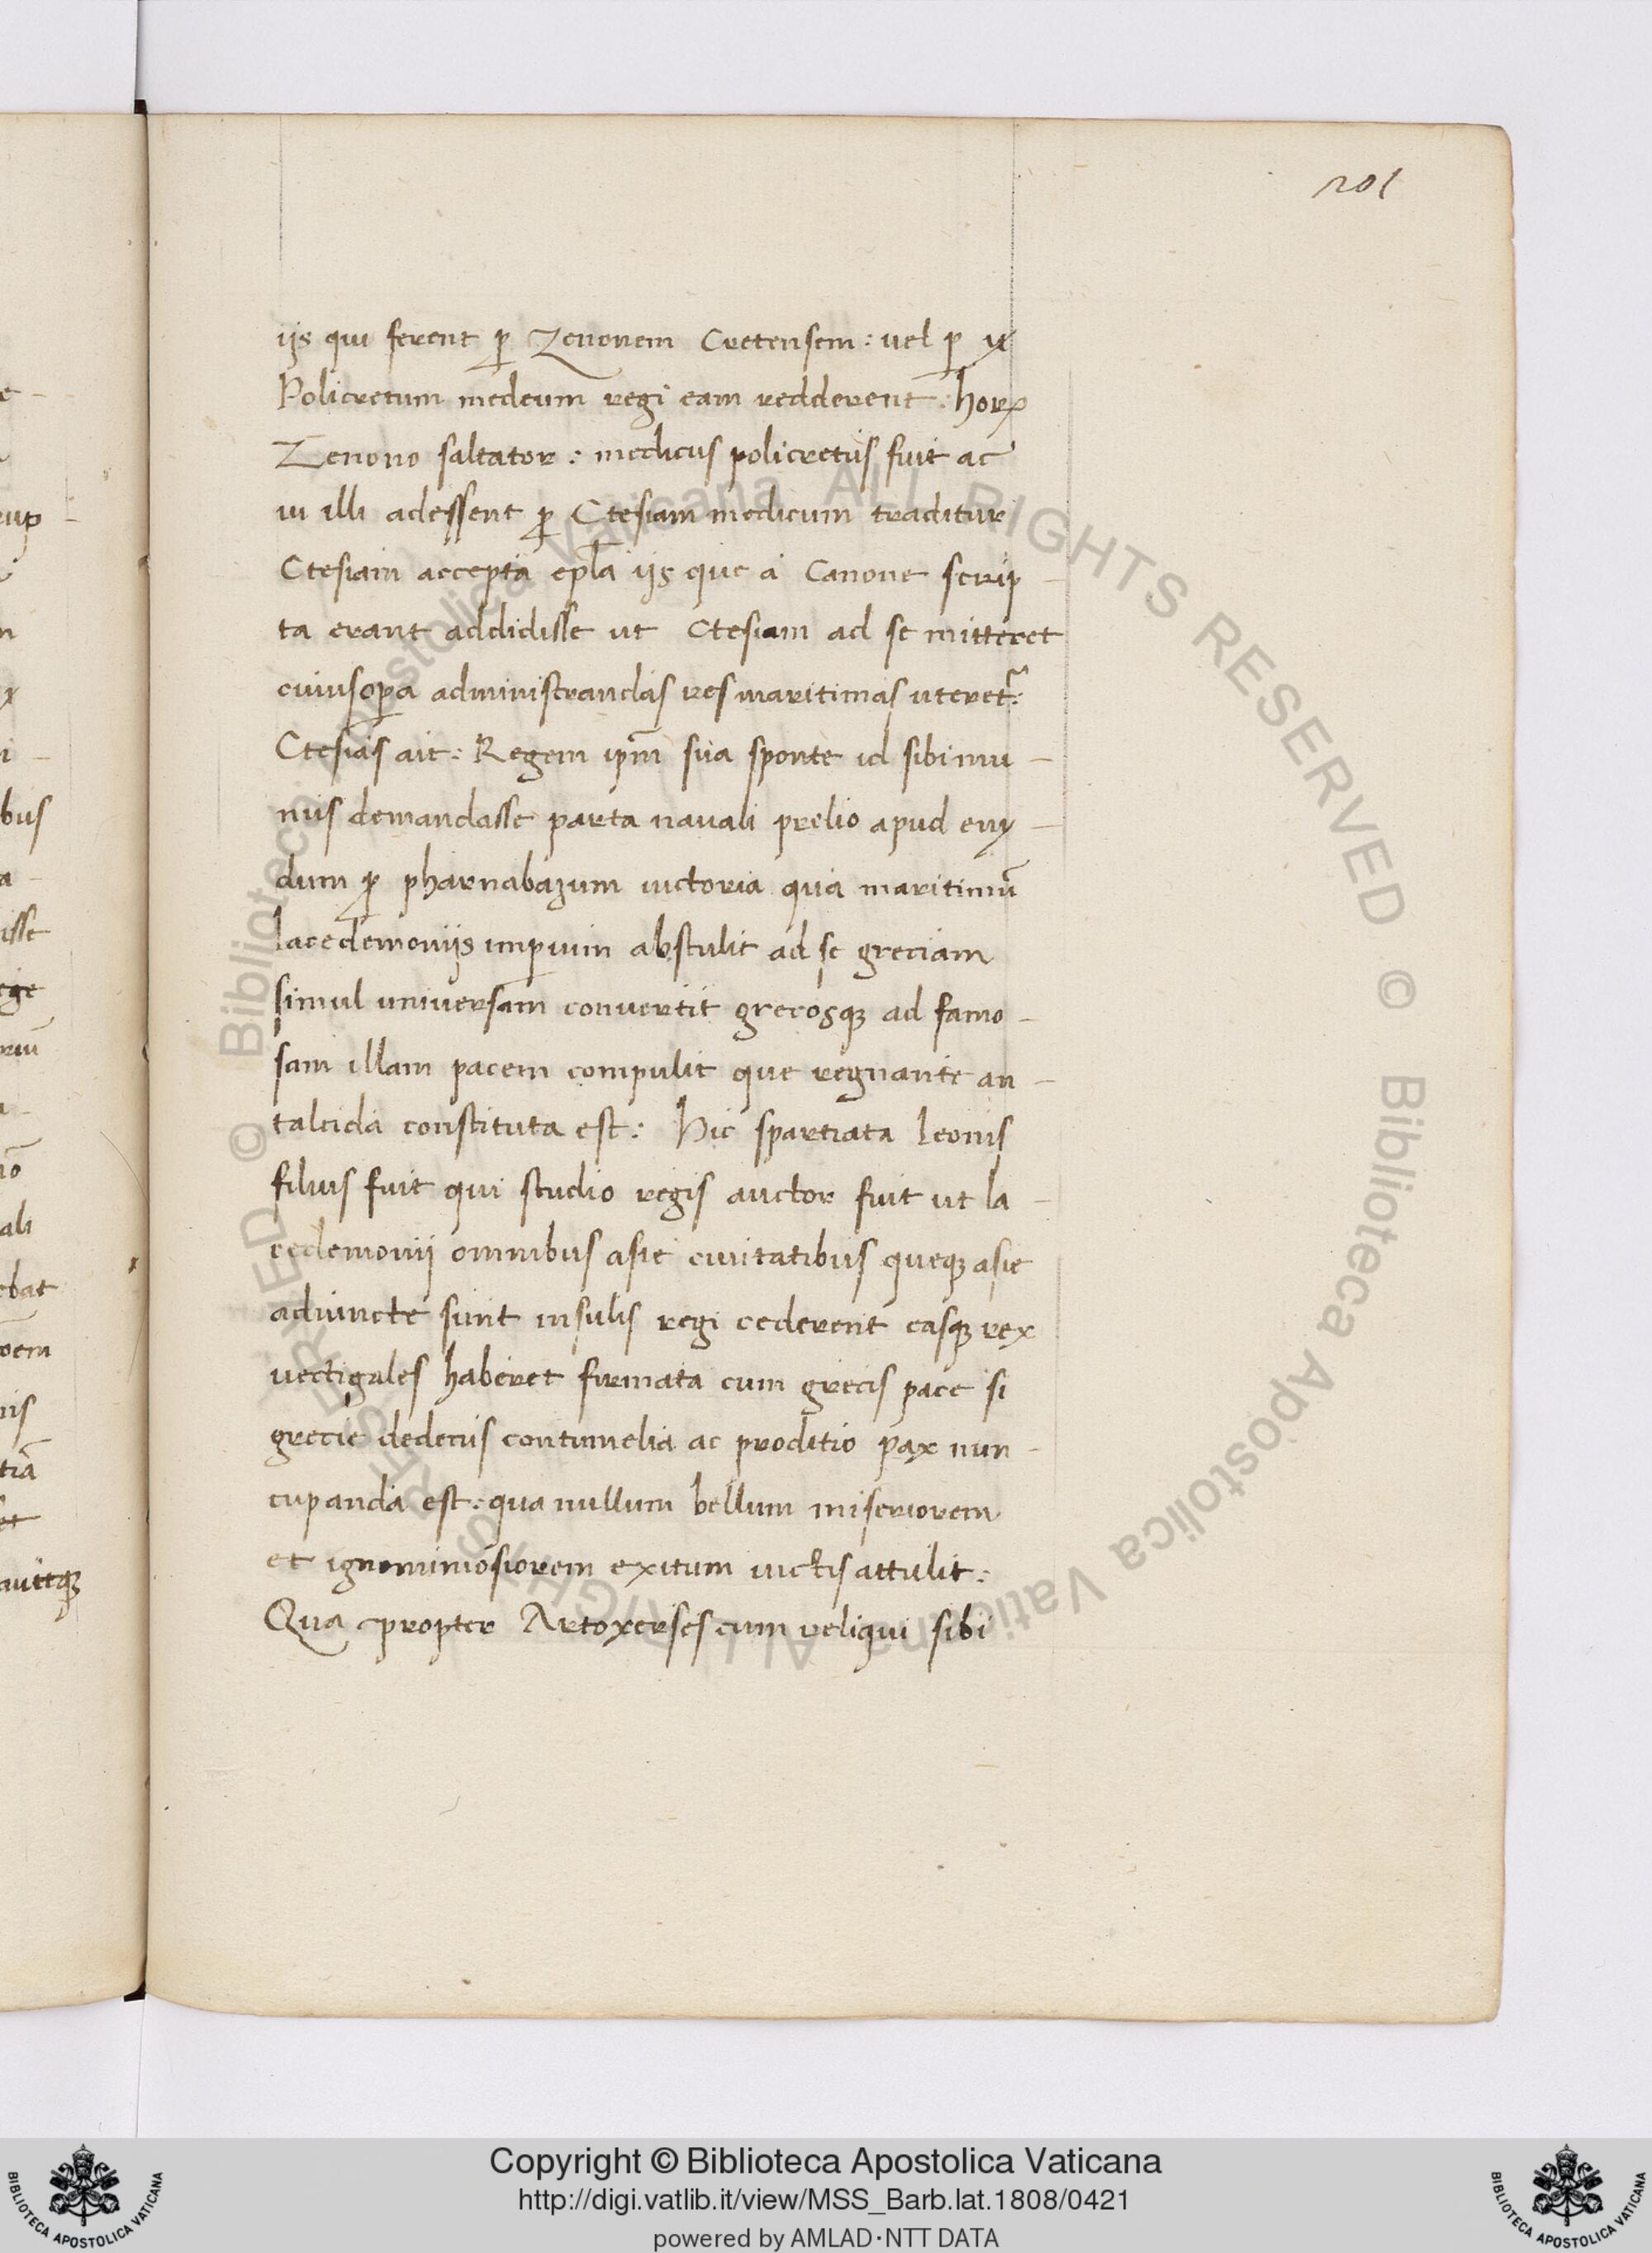 201
iis qui ferent ꝑ Zenonem Cretensem: uel ꝑ
Policretum medeum regi eam redderent: horꝝ
Zenono saltator: medicus policretus fuit ac
ui illi adessent ꝑ Ctesiam medicum traditur
Ctesiam accepta epl̃a iis que a Canone scrip-
ta erant addidisse ut Ctesiam ad se mitteret
cuius oꝑa administrandas res maritimas uteret᷑:
Ctesias ait: Regem ip̃m sua sponte id sibi mu-
nus demandasse parta nauali prelio apud eny-
dum ꝑ pharnabazum uictoria qua maritimū
lacedemoniis imꝑium abstulit ad se greciam
simul uniuersam conuertit grecosqꝫ ad famo-
sam illam pacem compulit que regnante an-
talcida constituta est: Hic spartiata leonis
filius fuit qui studio regis auctor fuit ut la-
cedemonij omnibus asie ciuitatibus queqꝫ asie
adiuncte sunt insulis regi cederent easqꝫ rex
uectigales haberet firmata cum grecis pace si
grecie dedecus contumelia ac proditio pax nun-
cupanda est: qua nullum bellum miseriorem
et ignominiosiorem exitum uictis attulit:
Qua propter Artoxerses cum reliqui sibi
Copyright © Biblioteca Apostolica Vaticana
http://digi.vatlib.it/view/MSS_Barb.lat.1808/0421
powered by AMLAD·NTT DATA